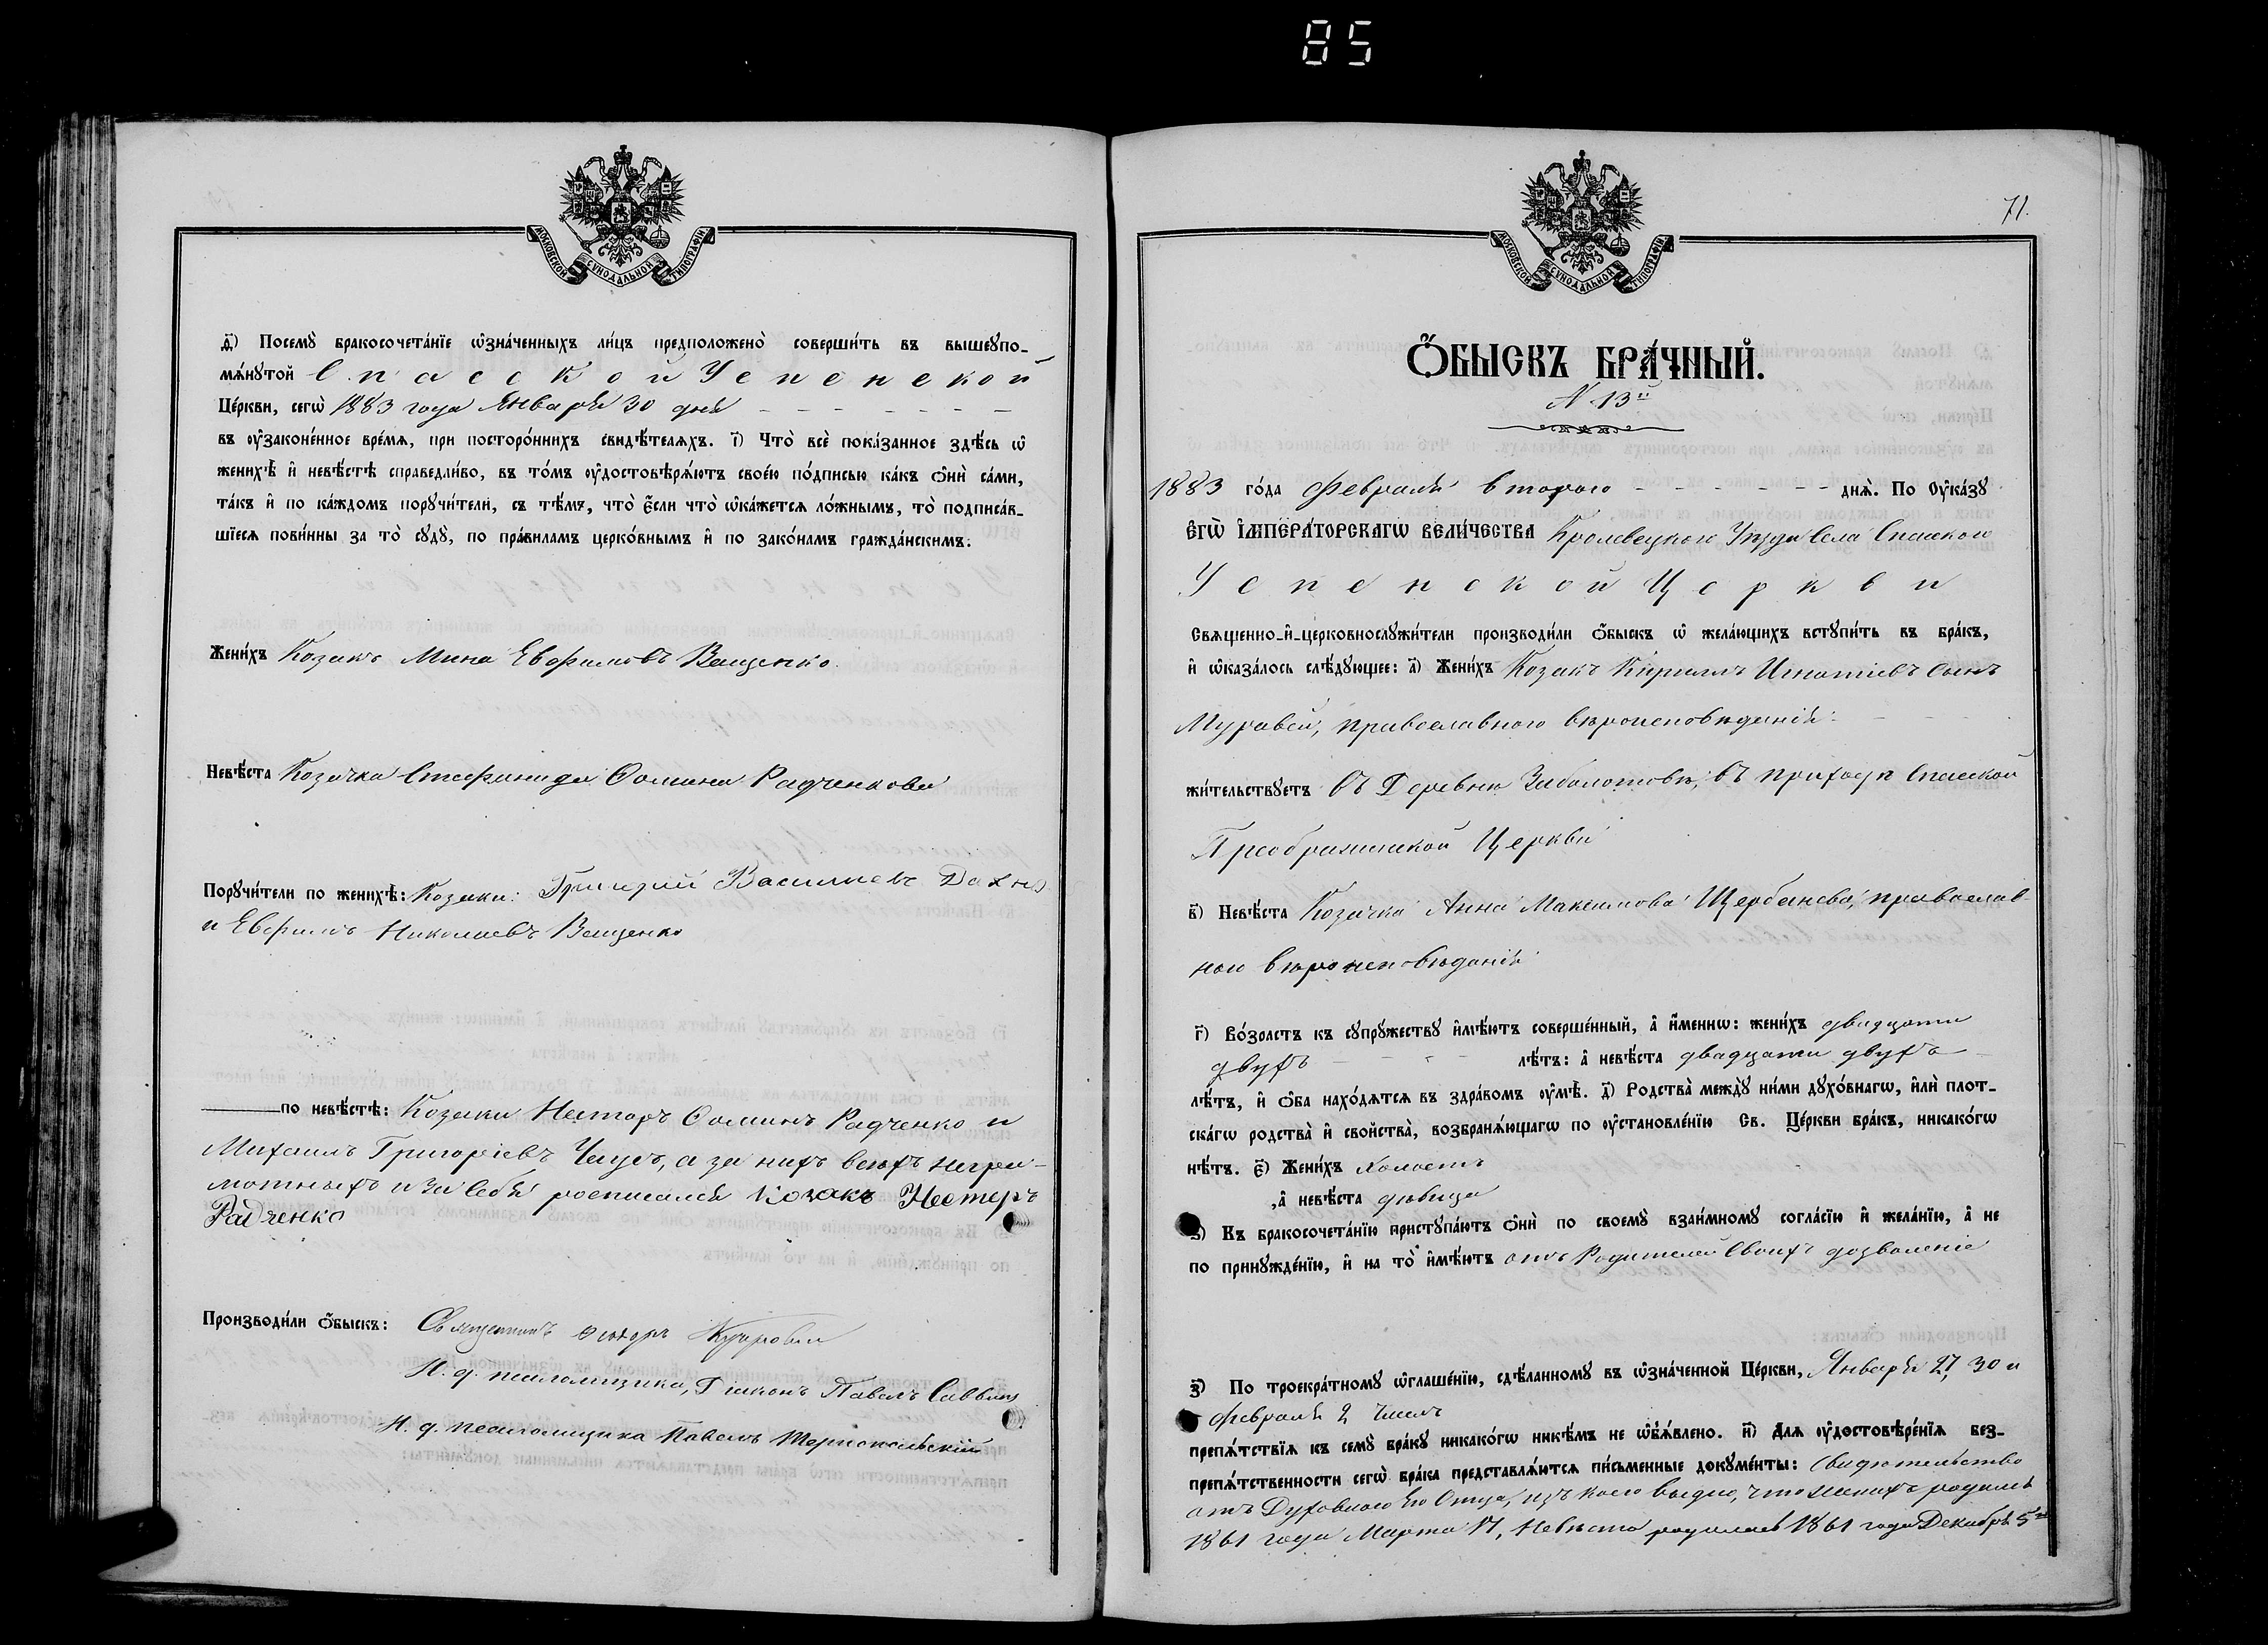 85
МОСКОВСКОЙ СѴНОДАЛЬНОЙ ТИПОГРАФІИ
ѳ҃) Посемꙋ̀ бракосочета́нїе ѡ҆зна́ченныхъ ли́цъ предположено̀ соверши́ть въ вышеꙋпо-
мѧ́нꙋтой Спасской Успенской
Це́ркви, сегѡ̀ 1883 года Января 30 дня
въ ᲂу҆законе́нное вре́мѧ, при посторо́ннихъ свидѣ́телѧхъ. і҃) Что̀ всѐ пока́занное здѣ́сь ѡ҆
женихѣ̀ и҆ невѣ́стѣ справедли́во, въ то́мъ ᲂу҆достовѣрѧ́ютъ свое́ю по́дписью ка́къ ѻ҆нѝ са́ми,
та́къ и҆ по ка́ждомъ порꙋчи́тели, съ тѣ́мъ, что̀ є҆́сли что̀ ѡ҆ка́жетсѧ ло́жнымъ, то̀ подписа́в-
шїесѧ пови́нны за то̀ сꙋдꙋ̀, по пра́виламъ церко́внымъ и҆ по зако́намъ гражда́нскимъ.
Жени́хъ Козакъ Мина Евфимовъ Ващенко.
Невѣ́ста Козачка Стефанида Ѳомина Радченкова
Порꙋчи́тели по женихѣ̀: Козаки: Григорий Васильевъ Дахно
и Евфимъ Николаевъ Ващенко
по невѣ́стѣ: Козаки Несторъ Ѳоминъ Радченко и
Михаилъ Григоріевъ Чаусъ, а за нихъ всѣхъ негра-
мотныхъ и за себя росписался козакъ Нестеръ
Радченко
Производи́ли ѻ҆́быскъ: Священникъ Ѳеодоръ
И. д. псаломщика, Діаконъ Павелъ Саввичъ
И. д. псаломщика Павелъ Тарнопольскій
71.
МОСКОВСКОЙ СѴНОДАЛЬНОЙ ТИПОГРАФІИ
Ѻ҆́БЫСКЪ БРА́ЧНЫЙ.
N 13й
1883 го́да Февраля втораго днѧ̀. По Оу҆ка́зꙋ
Є҆ГѠ̀ І҆МПЕРА́ТОРСКАГѠ ВЕЛИ́ЧЕСТВА Кролевецкаго Уѣзда Села Спаского
Успенской Церкви
Свѧще́нно-и҆-церковнослꙋжи́тели производи́ли ѻ҆́быскъ ѡ҆ жела́ющихъ встꙋпи́ть въ бра́къ,
и҆ ѡ҆каза́лось слѣ́дꙋющее: а҃) Жени́хъ Козакъ Кириллъ Игнатіевъ сынъ
Муравей, православного вѣроисповѣданія
жи́тельствꙋетъ въ Деревнѣ Заболотовѣ, въ приходѣ Спаской
Преображенской Церкви
в҃) Невѣ́ста Козачка Анна Максимова Щербанева, православ-
ного вѣроисповѣданія
г҃) Во́зрастъ къ сꙋпрꙋ́жествꙋ и҆мѣ́ютъ соверше́нный, а҆ и҆́меннѡ: жени́хъ двадцати
двухъ лѣ́тъ: а҆ невѣ́ста двадцати двухъ
лѣ́тъ, и҆ ѻ҆́ба нахо́дѧтсѧ въ здра́вомъ ᲂу҆мѣ̀. д҃) Родства̀ междꙋ̀ ни́ми дꙋхо́внагѡ, и҆лѝ плот-
ска́гѡ родства̀ и҆ сво́йства, возбранѧ́ющагѡ по ᲂу҆становле́нїю Св. Це́ркви бра́къ, никако́гѡ
нѣ́тъ. є҃) Жени́хъ холостъ
,а҆ невѣ́ста дѣвица
ѕ҃) Къ бракосочета́нїю пристꙋпа́ютъ ѻ҆нѝ по своемꙋ̀ взаи́мномꙋ согла́сїю и҆ жела́нїю, а҆ не
по принꙋжде́нїю, и҆ на то̀ и҆мѣ́ютъ отъ Родителей своихъ дозволеніе
з҃) По троекра́тномꙋ ѡ҆глаше́нїю, сдѣ́ланномꙋ въ ѡ҆зна́ченной Це́ркви, Января 27, 30 и
Февраля 2 числъ
препѧ́тствїѧ къ семꙋ̀ бра́кꙋ никако́гѡ никѣ́мъ не ѡ҆б̾ѧ́влено. и҃) Длѧ ᲂу҆достовѣре́нїѧ без-
препѧ́тственности сегѡ̀ бра́ка представлѧ́ютсѧ пи́сьменные докꙋме́нты: свидѣтельство
отъ Духовного его Отца, изъ коего видно, что женихъ родился
1861 года Марта 17, невѣста родилась 1861 года Декабря 5го